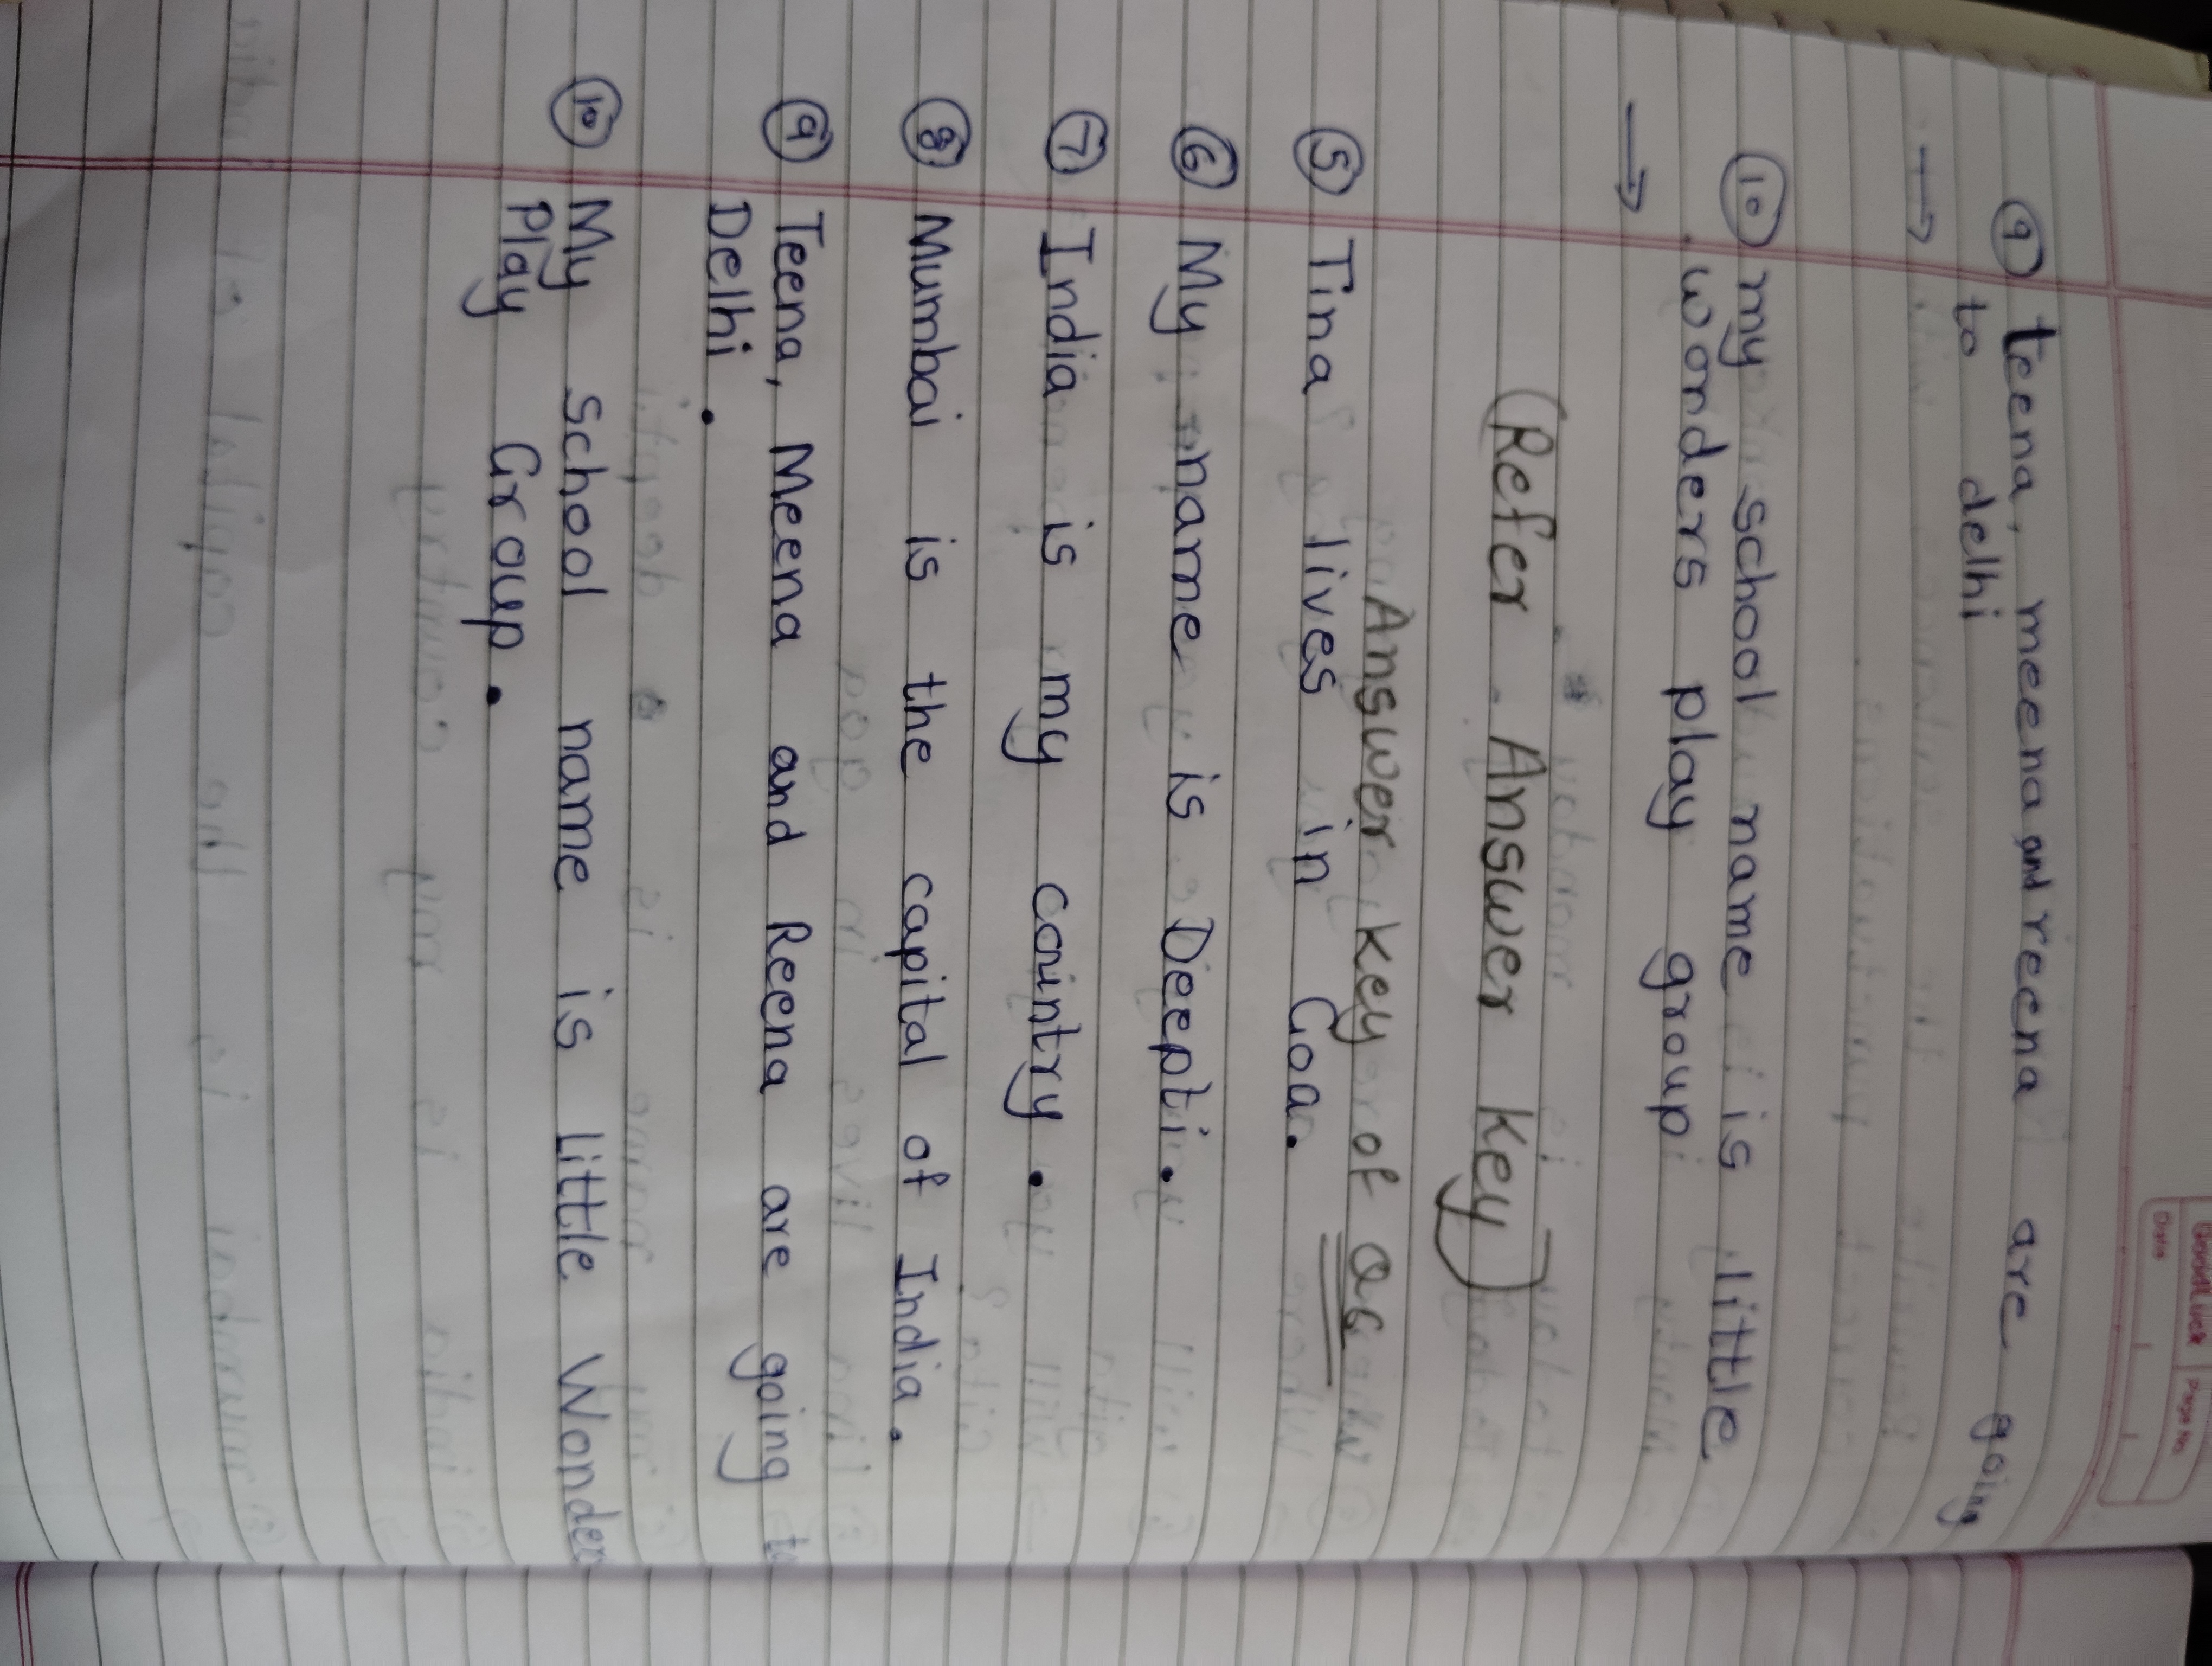 GoodLuck Page No.
Date
⑨ teena, meena and reena are going
to delhi
→
⑩ my school name is little
wonders play group
→
(Refer Answer Key)
Answer Key of Q6
⑤ Tina lives in Goa.
⑥ My name is Deepti.
⑦ India is my country.
⑧ Mumbai is the capital of India.
⑨ Teena, Meena and Reena are going to
Delhi.
⑩ My school name is Little Wonders
Play Group.